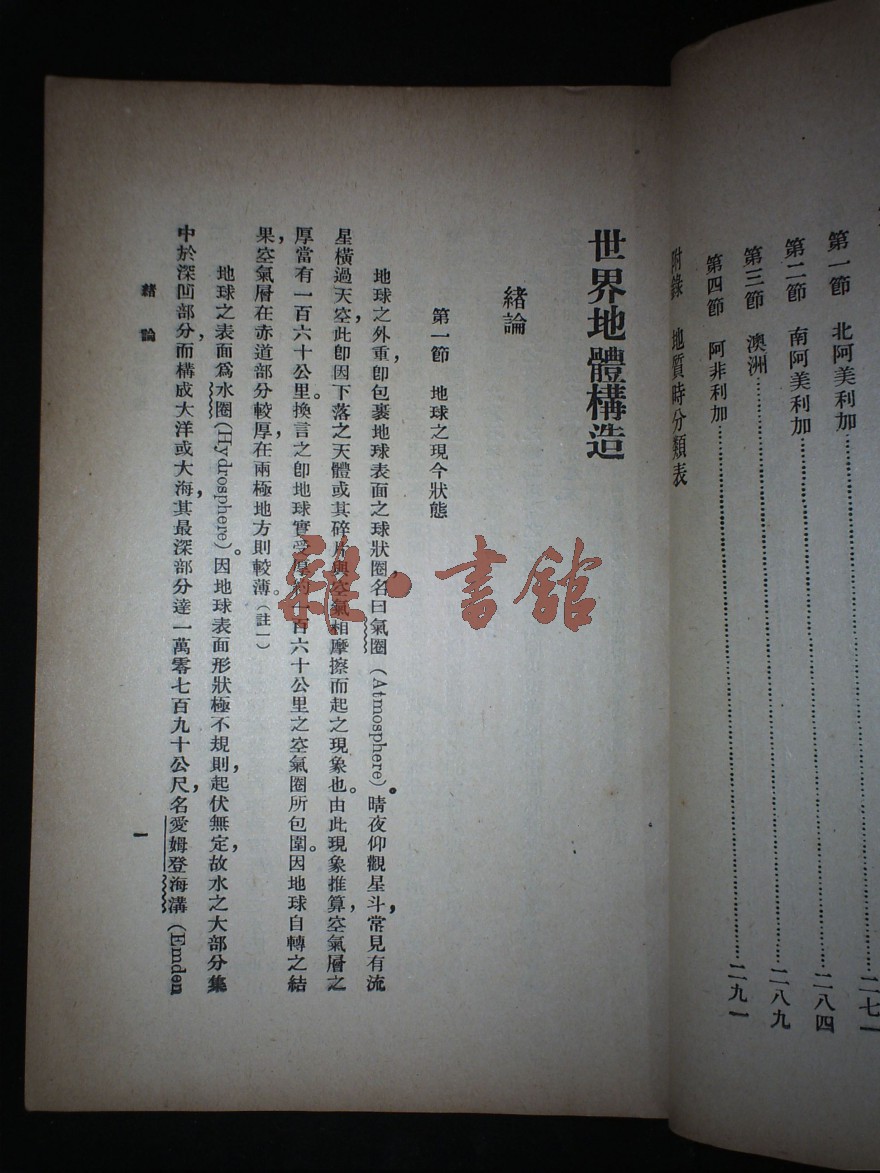 第一節　北阿美利加……二七一
第二節　南阿美利加……二八四
第三節　澳洲……二八九
第四節　阿非利加……二九一
附錄　地質時分類表
世界地體構造
緒論
第一節　地球之現今狀態
地球之外重，卽包裹地球表面之球狀圈，名曰氣圈（Atmosphere）。晴夜仰觀星斗，常見有流
星橫過天空，此卽因下落之天體或其碎片與空氣相摩擦而起之現象也。由此現象推算，空氣層之
厚當有一百六十公里。換言之，卽地球實受厚約一百六十公里之空氣圈所包圍。因地球自轉之結
果，空氣層在赤道部分較厚，在兩極地方則較薄。（註一）
地球之表面爲水圈（Hydrosphere）。因地球表面形狀極不規則，起伏無定，故水之大部分集
中於深凹部分，而構成大洋或大海，其最深部分達一萬零七百九十公尺，名愛姆登海溝（Emden
緒論
一
雜·書館